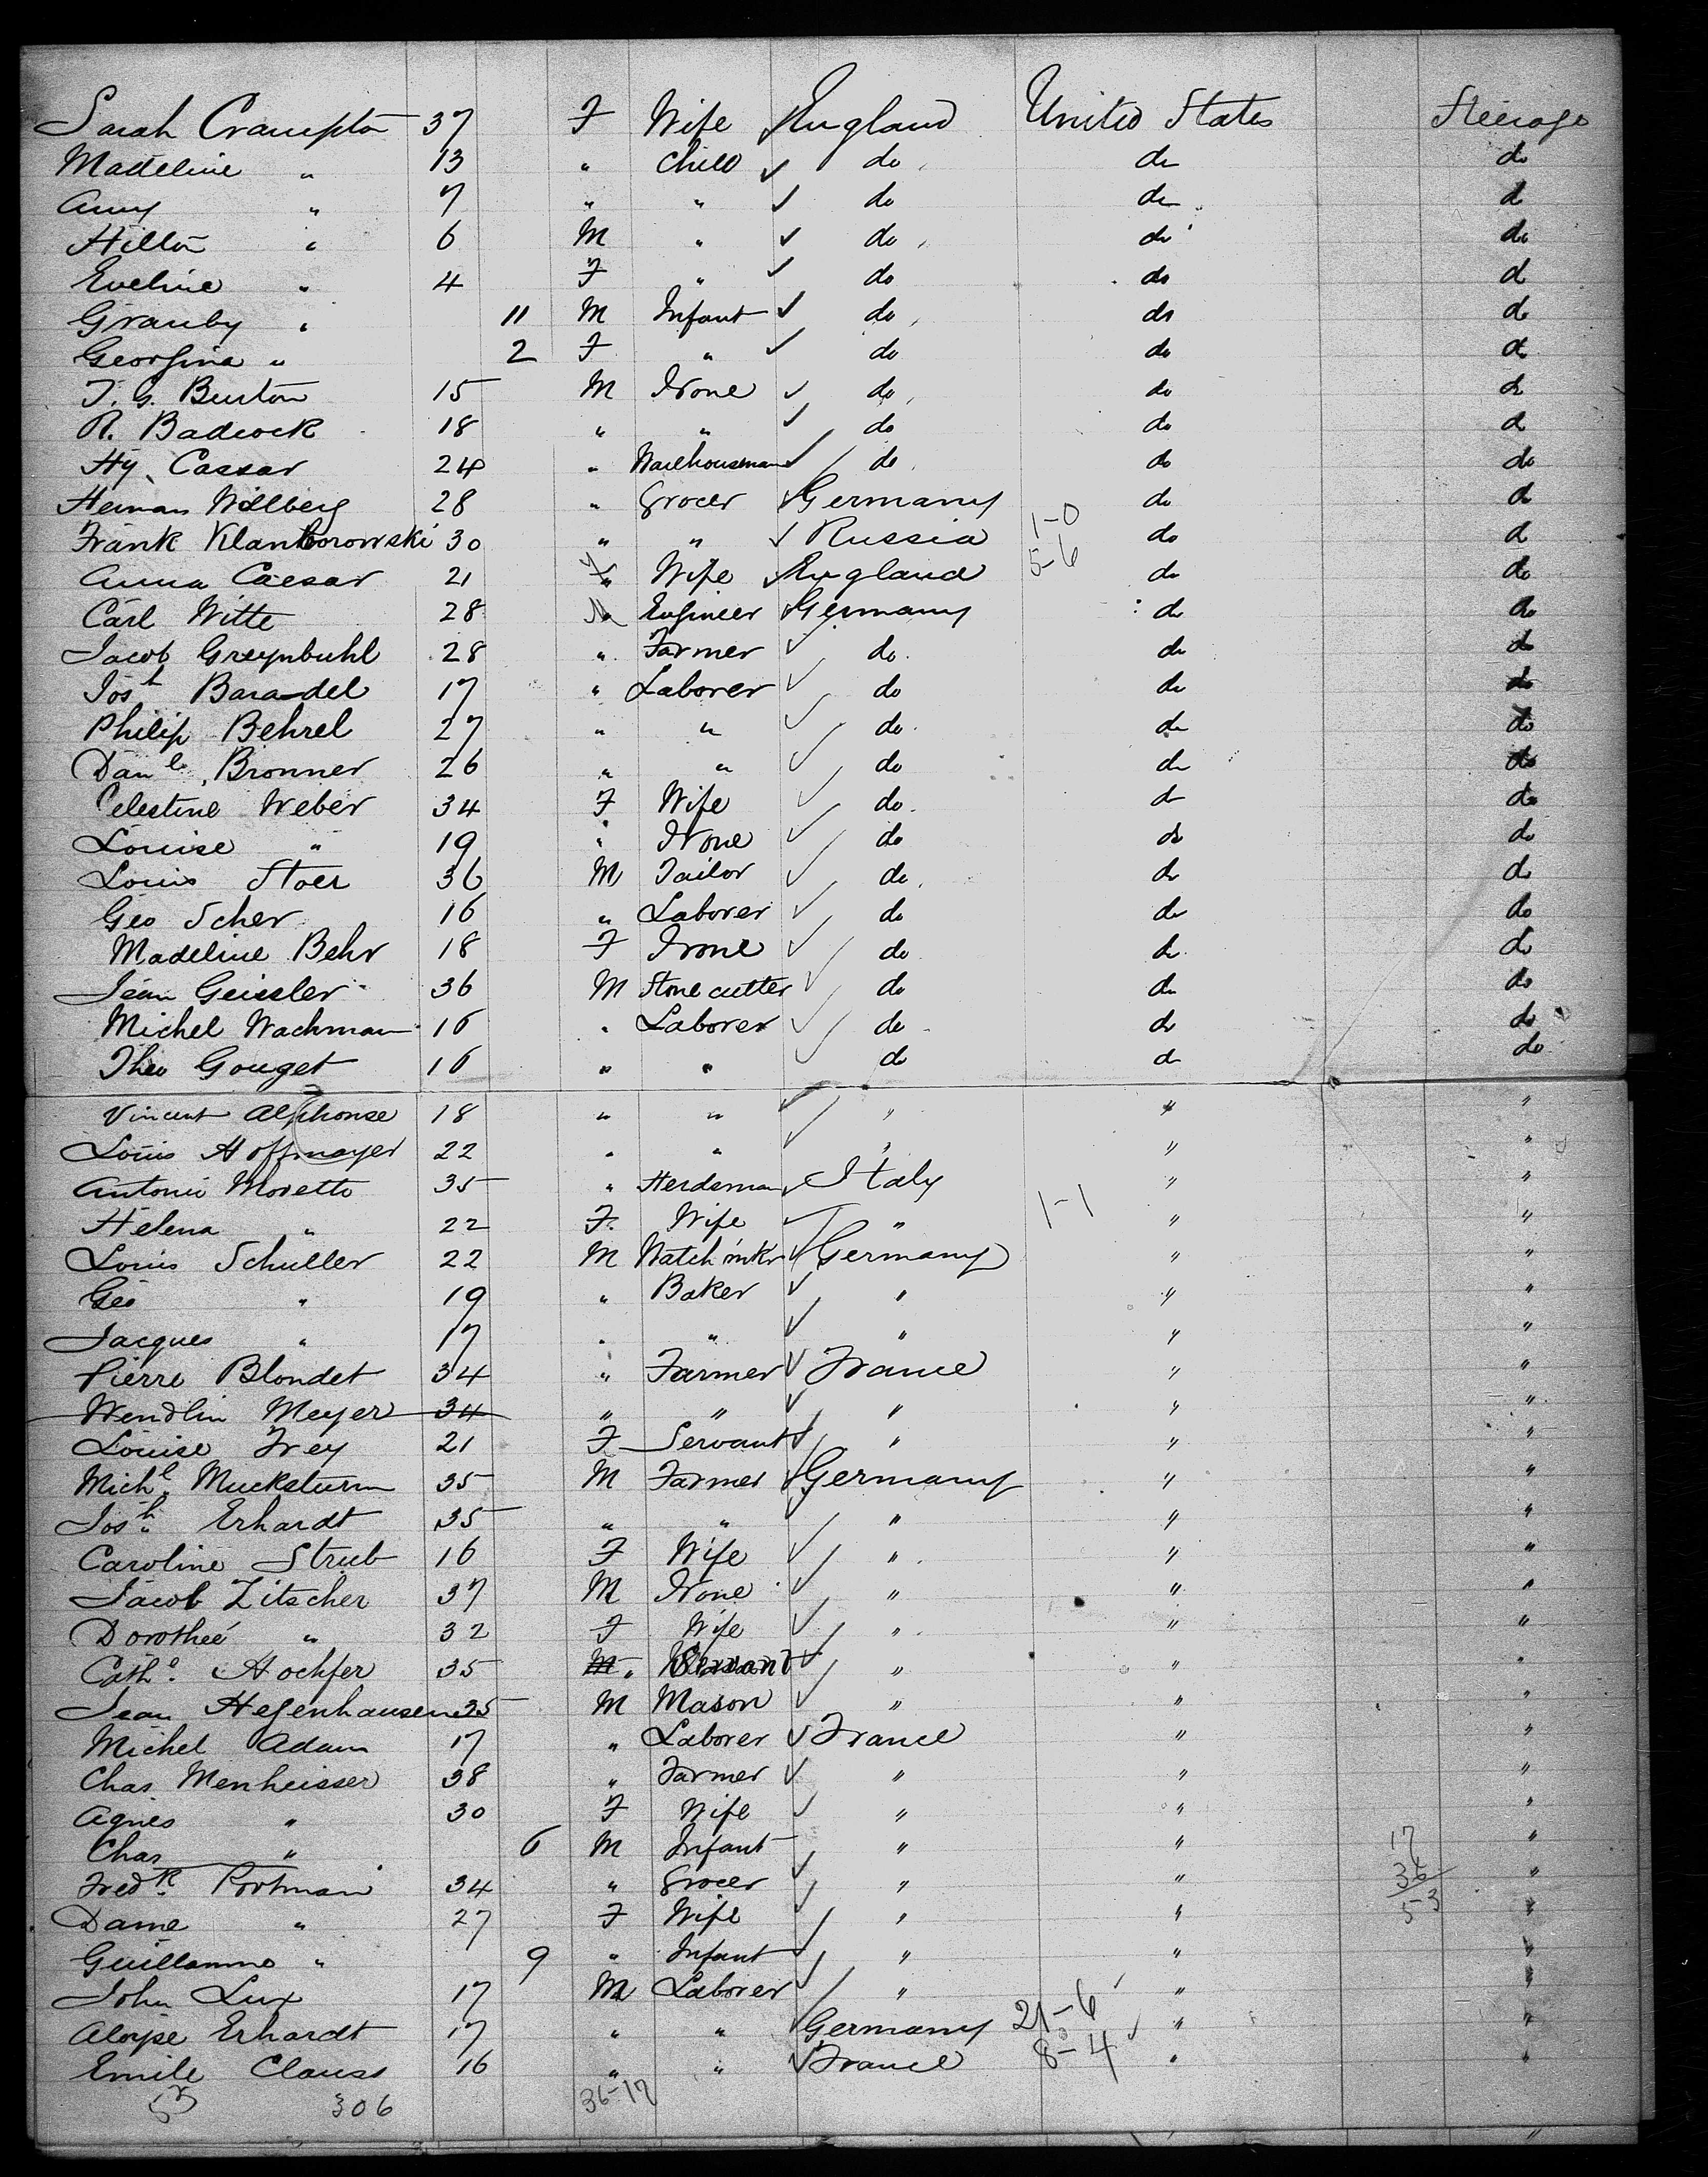 Sarah Crampton 37 F Wife England United States Steerage
Madeline " 13 " Child do do do
Amy " 7 " " do do do
Hilton " 6 M " do do do
Eveline " 4 F " do do do
Granby " 11 M Infant do do do
Georgina " 2 F " do do do
T. G. Burton 15 M None do do do
R. Badcock 18 " " do do do
Hy. Cassar 24 " Warehouseman do do do
Herman Willberg 28 " Grocer Germany do do
1-0
Frank Klanborowski 30 " " Russia do do
5-6
Anna Caesar 21 F Wife England do do
Carl Witte 28 M Engineer Germany do do
Jacob Greynbuhl 28 " Farmer do do do
Josh Baradel 17 " Laborer do do do
Philip Behrel 27 " " do do do
Danl. Bronner 26 " " do do do
Celestine Weber 34 F Wife do do do
Louise " 19 " None do do do
Louis Stoer 36 M Tailor do do do
Geo Scher 16 " Laborer do do do
Madeline Behr 18 F None do do do
Jean Geissler 36 M Stone cutter do do do
Michel Wachman 16 " Laborer do do do
Theo Gouget 16 " " do do do
Vincent Alphonse 18 " " " " "
Louis Hoffmayer 22 " " " " "
Antonio Moretto 35 " Herdsman Italy " "
Helena " 22 F. Wife " 1-1 " "
Louis Schuller 22 M Watch mkr Germany " "
Geo " 19 " Baker " " "
Jacques " 17 " " " " "
Pierre Blondet 34 " Farmer France " "
Wendlin Meyer 34 " " " " "
Louise Frey 21 F Servant " " "
Michl. Mucksturm 35 M Farmer Germany " "
Josh. Erhardt 35 " " " " "
Caroline Strub 16 F Wife " " "
Jacob Zitscher 37 M None " " "
Dorotheé " 32 F Wife " " "
Cathe. Hochfer 35 M " Servant " " "
Jean Hegenhausen 35 M Mason " " "
Michel Adam 17 " Laborer France " "
Chas Menheisser 38 " Farmer " " "
Agnes " 30 F Wife " " "
Chas " 6 M Infant " " 17 "
FredK. Portman 34 " Grocer " " 36 "
Dame " 27 F Wife " " 53 "
Guillamme " 9 " Infant " " "
John Lux 17 M Laborer " " "
Aloyse Erhardt 17 " " Germany 21-6 " "
Emile Clauss 16 " " France 8-4 " "
53 306 36-17